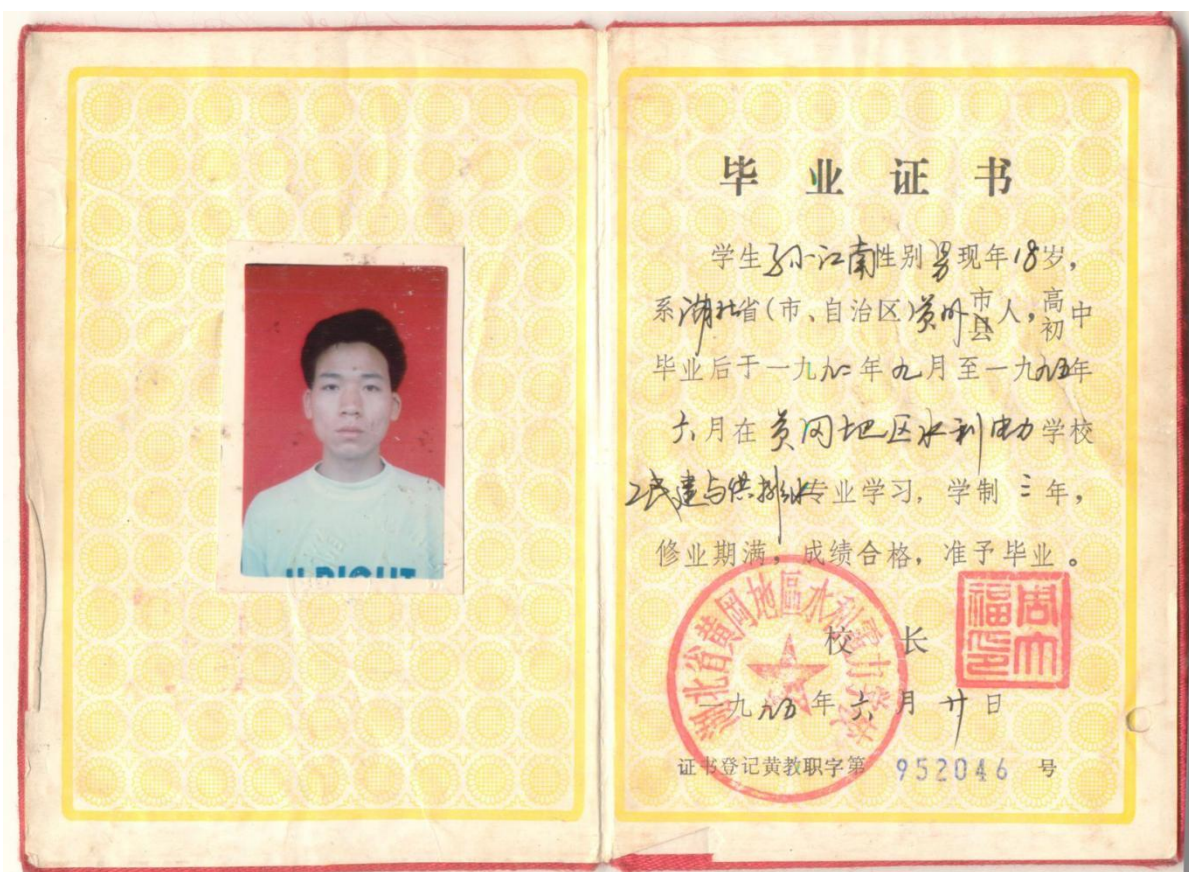 U.RIGHT
毕业证书
学生孙江南性别男现年18岁，
系湖北省(市、自治区)黄州市县人，高初中
毕业后于一九九二年九月至一九九五年
六月在黄冈地区水利电力学校
工民建与供排水专业学习，学制三年，
修业期满，成绩合格，准予毕业。
湖北省黄冈地區水利電力学校
校长
周大福印
一九九五年六月廿日
证书登记黄教职字第952046号